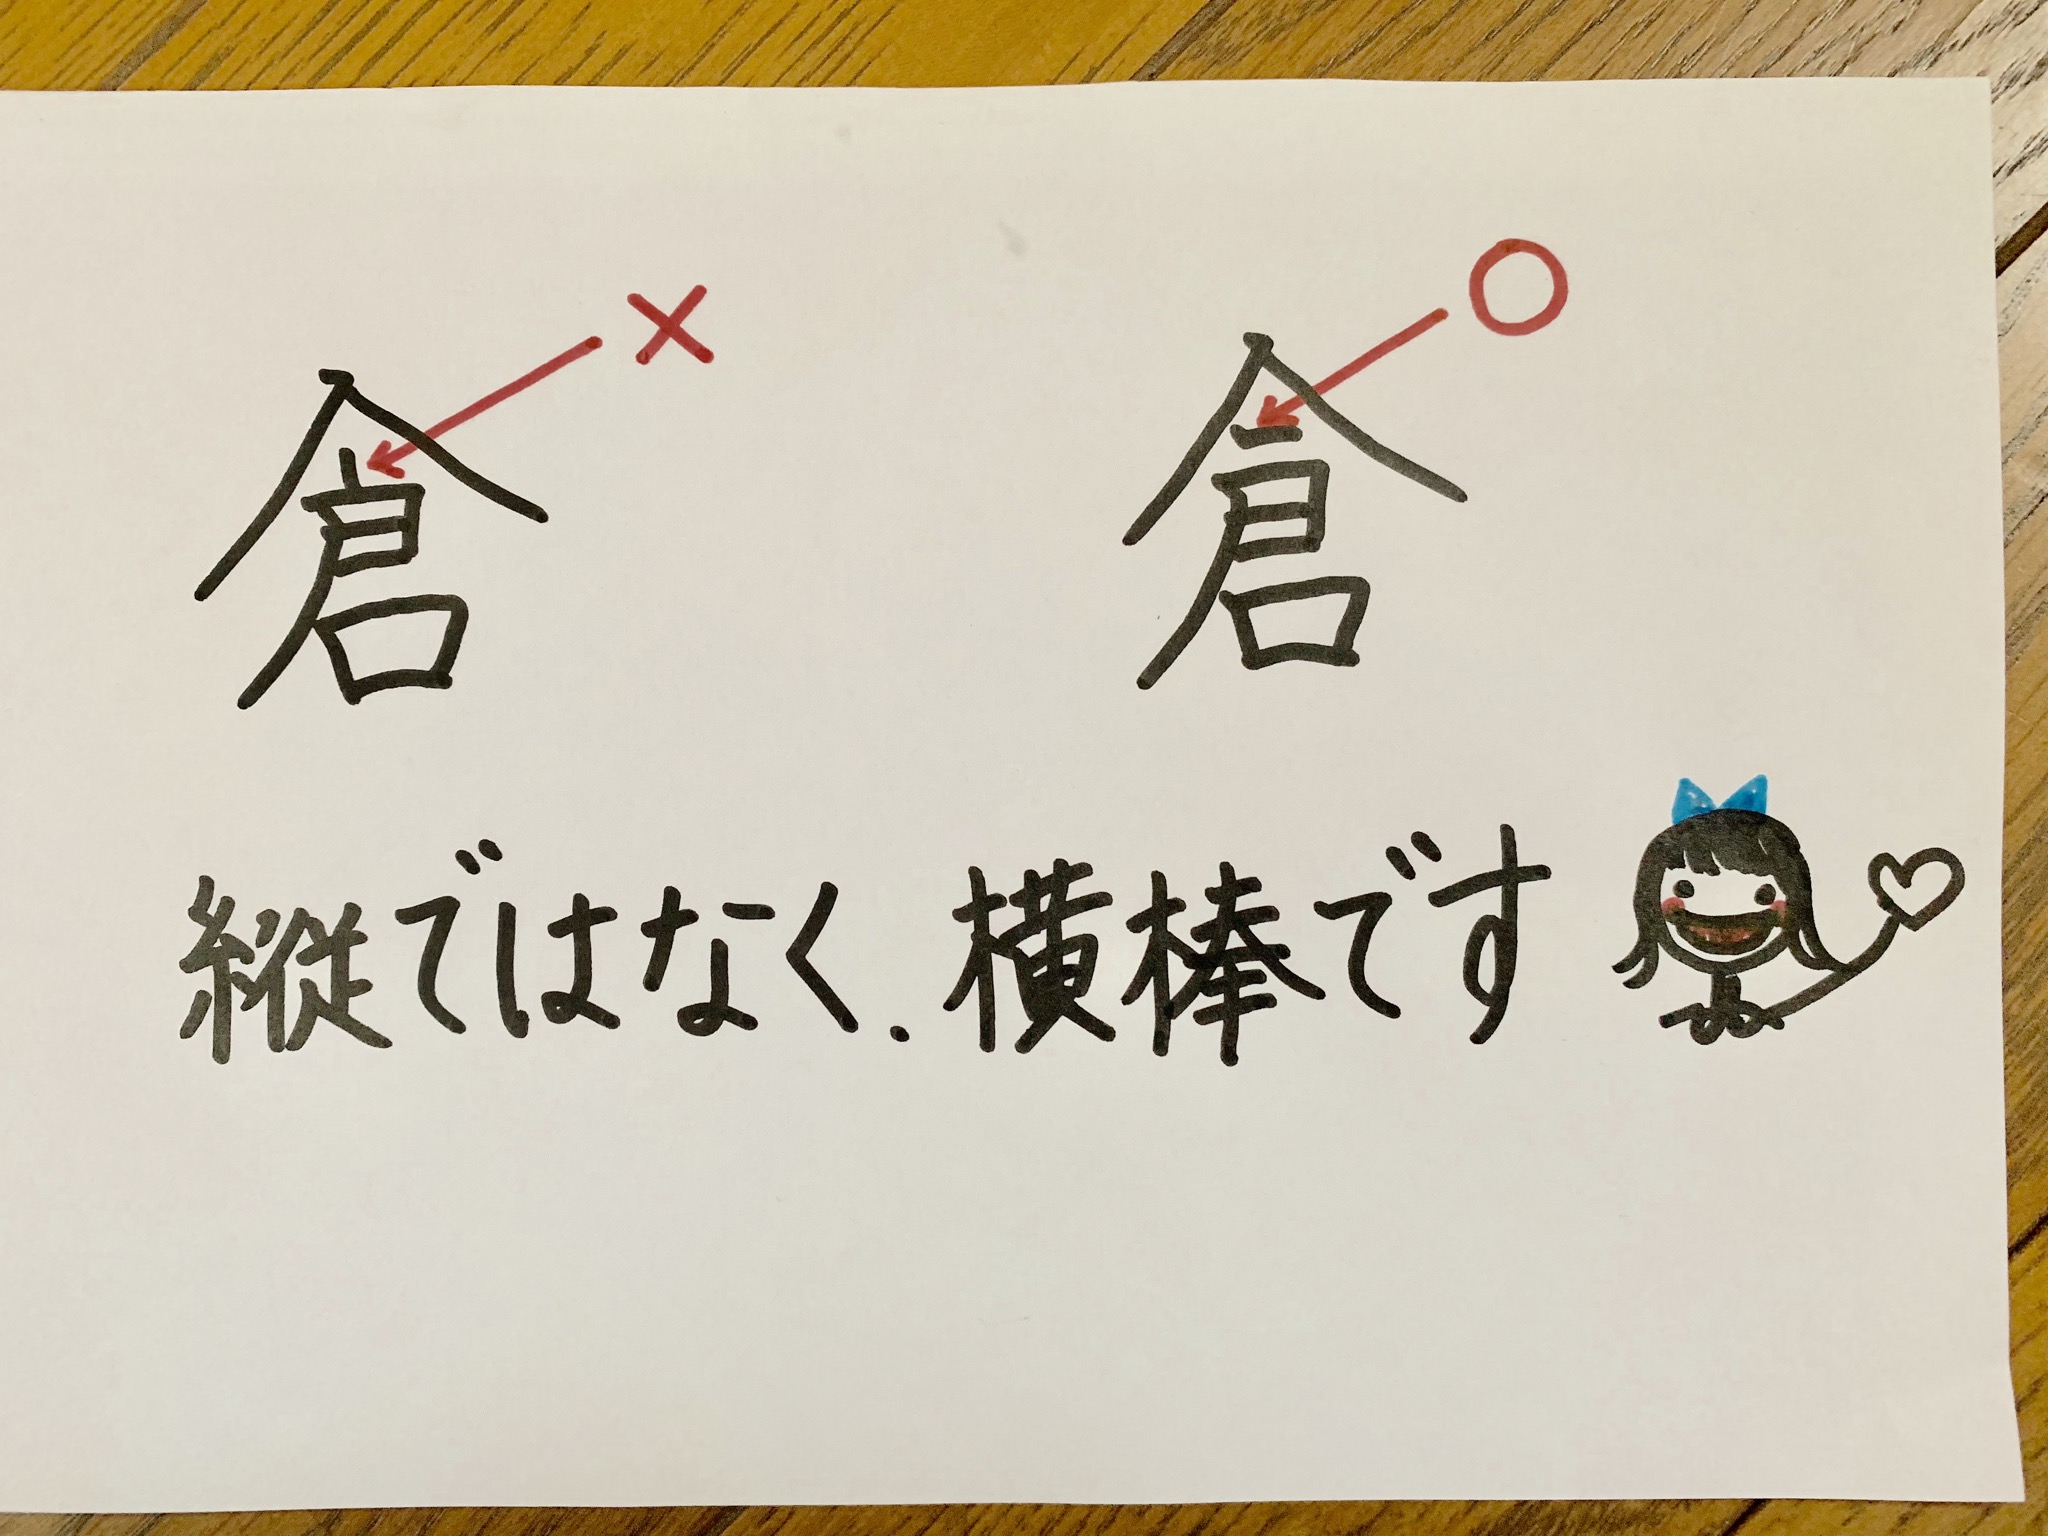 × ○
倉 倉
縦ではなく、横棒です